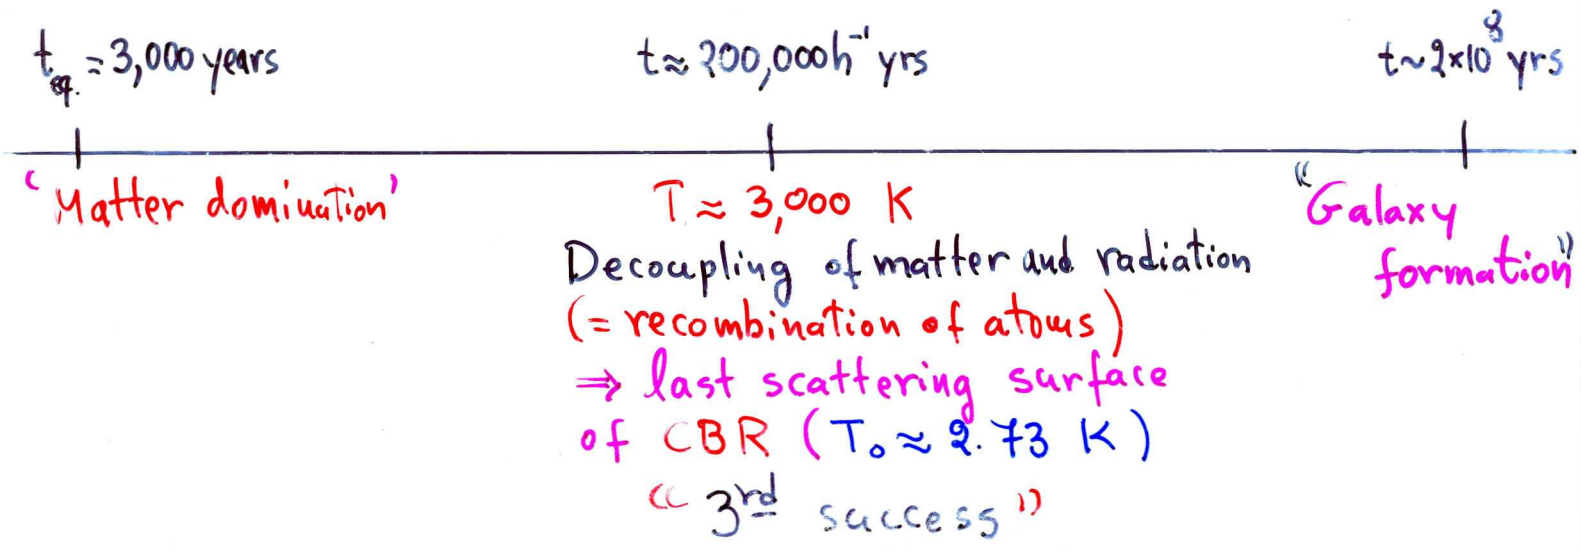 t_eq. = 3,000 years
t ≈ 200,000 h⁻¹ yrs
t ~ 2×10⁸ yrs
'Matter domination'
T ≈ 3,000 K
Decoupling of matter and radiation
(= recombination of atoms)
⇒ last scattering surface
of CBR (T₀ ≈ 2.73 K)
"3rd success"
"Galaxy
formation"